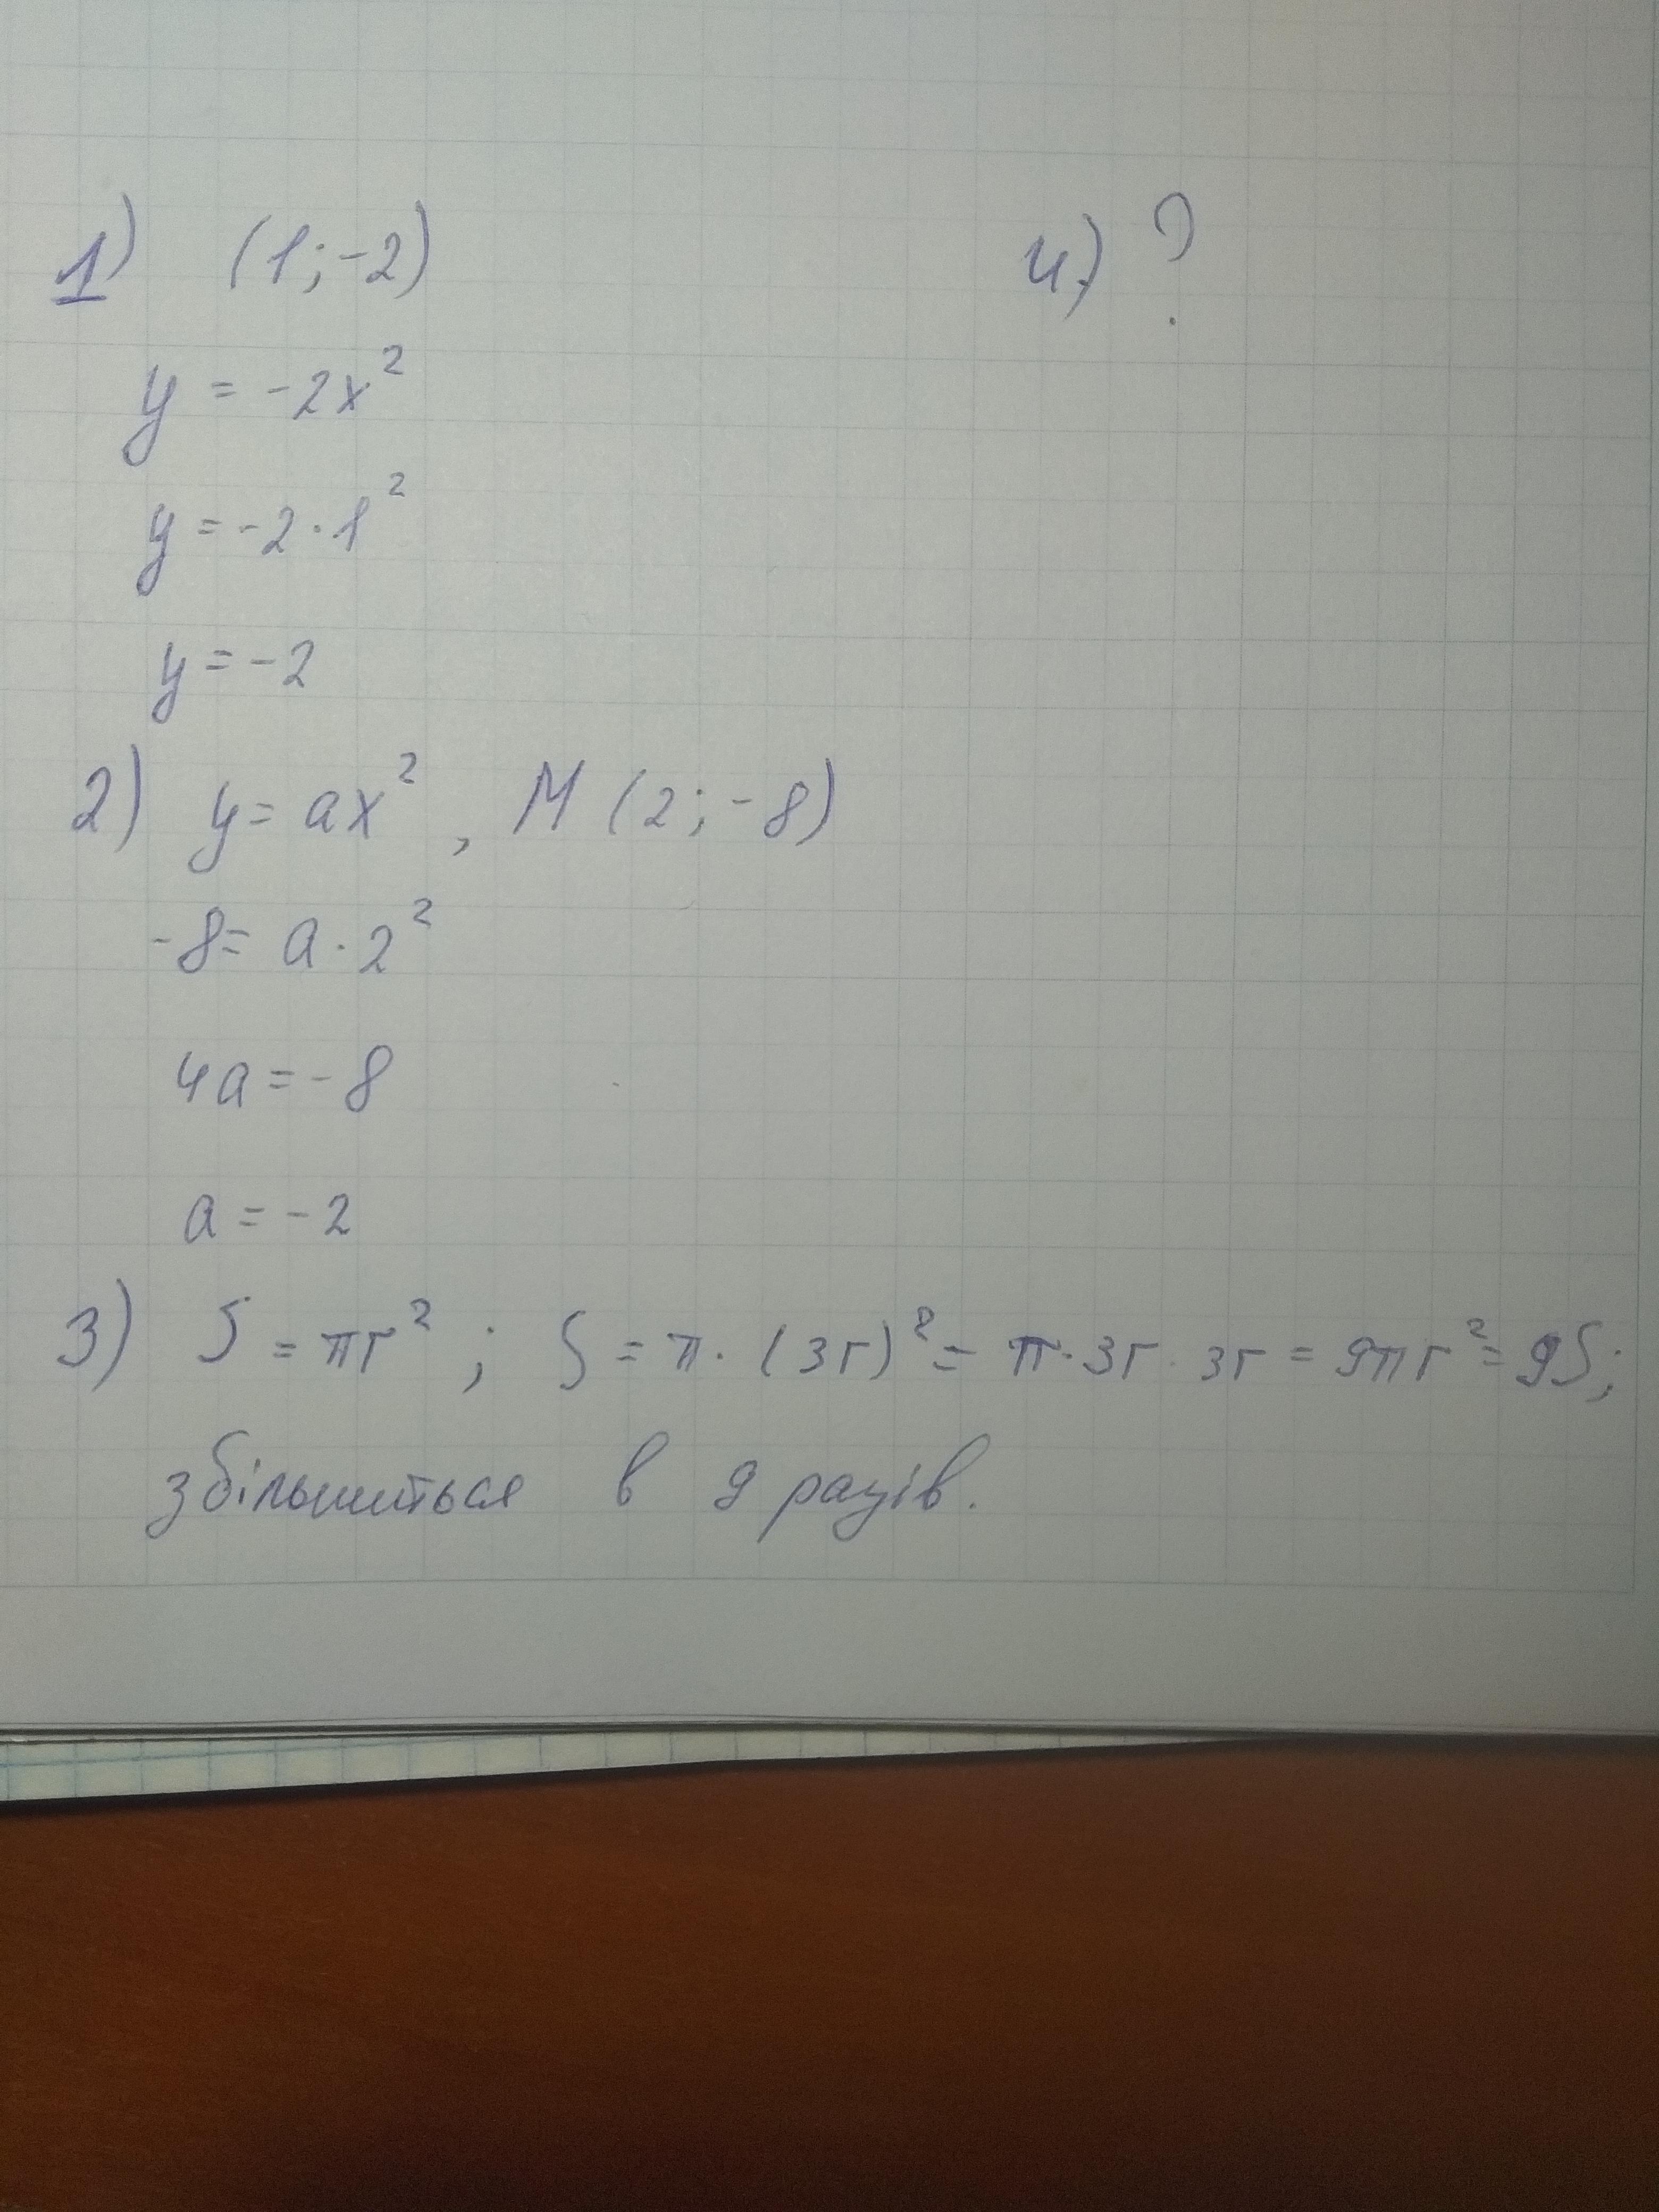 1) (1; -2)
y = -2x²
y = -2 · 1²
y = -2
2) y = ax², M (2; -8)
-8 = a · 2²
4a = -8
a = -2
3) S = πr²; S = π · (3r)² = π · 3r · 3r = 9πr² = 9S;
збільшиться в 9 разів.
4) ?